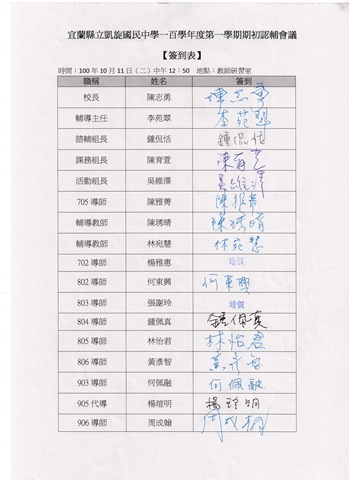 宜蘭縣立凱旋國民中學一百學年度第一學期期初認輔會議
【簽到表】
時間：100 年 10 月 11 日（二）中午 12：50 地點：教師研習室
職稱 姓名 簽到
校長 陳志勇 陳志勇
輔導主任 李苑翠 李苑翠
諮輔組長 鍾侃恬 鍾侃恬
課務組長 陳育萱 陳育萱
活動組長 吳維澤 吳維澤
705 導師 陳雅菁 陳雅菁
輔導教師 陳琇晴 陳琇晴
輔導教師 林宛慧 林宛慧
702 導師 楊雅惠 請假
802 導師 何東興 何東興
803 導師 張謝玲 請假
804 導師 鍾佩真 鍾佩真
805 導師 林怡君 林怡君
806 導師 黃彥智 黃彥智
903 導師 何佩融 何佩融
905 代導 楊瑄明 楊瑄明
906 導師 周成翰 周成翰